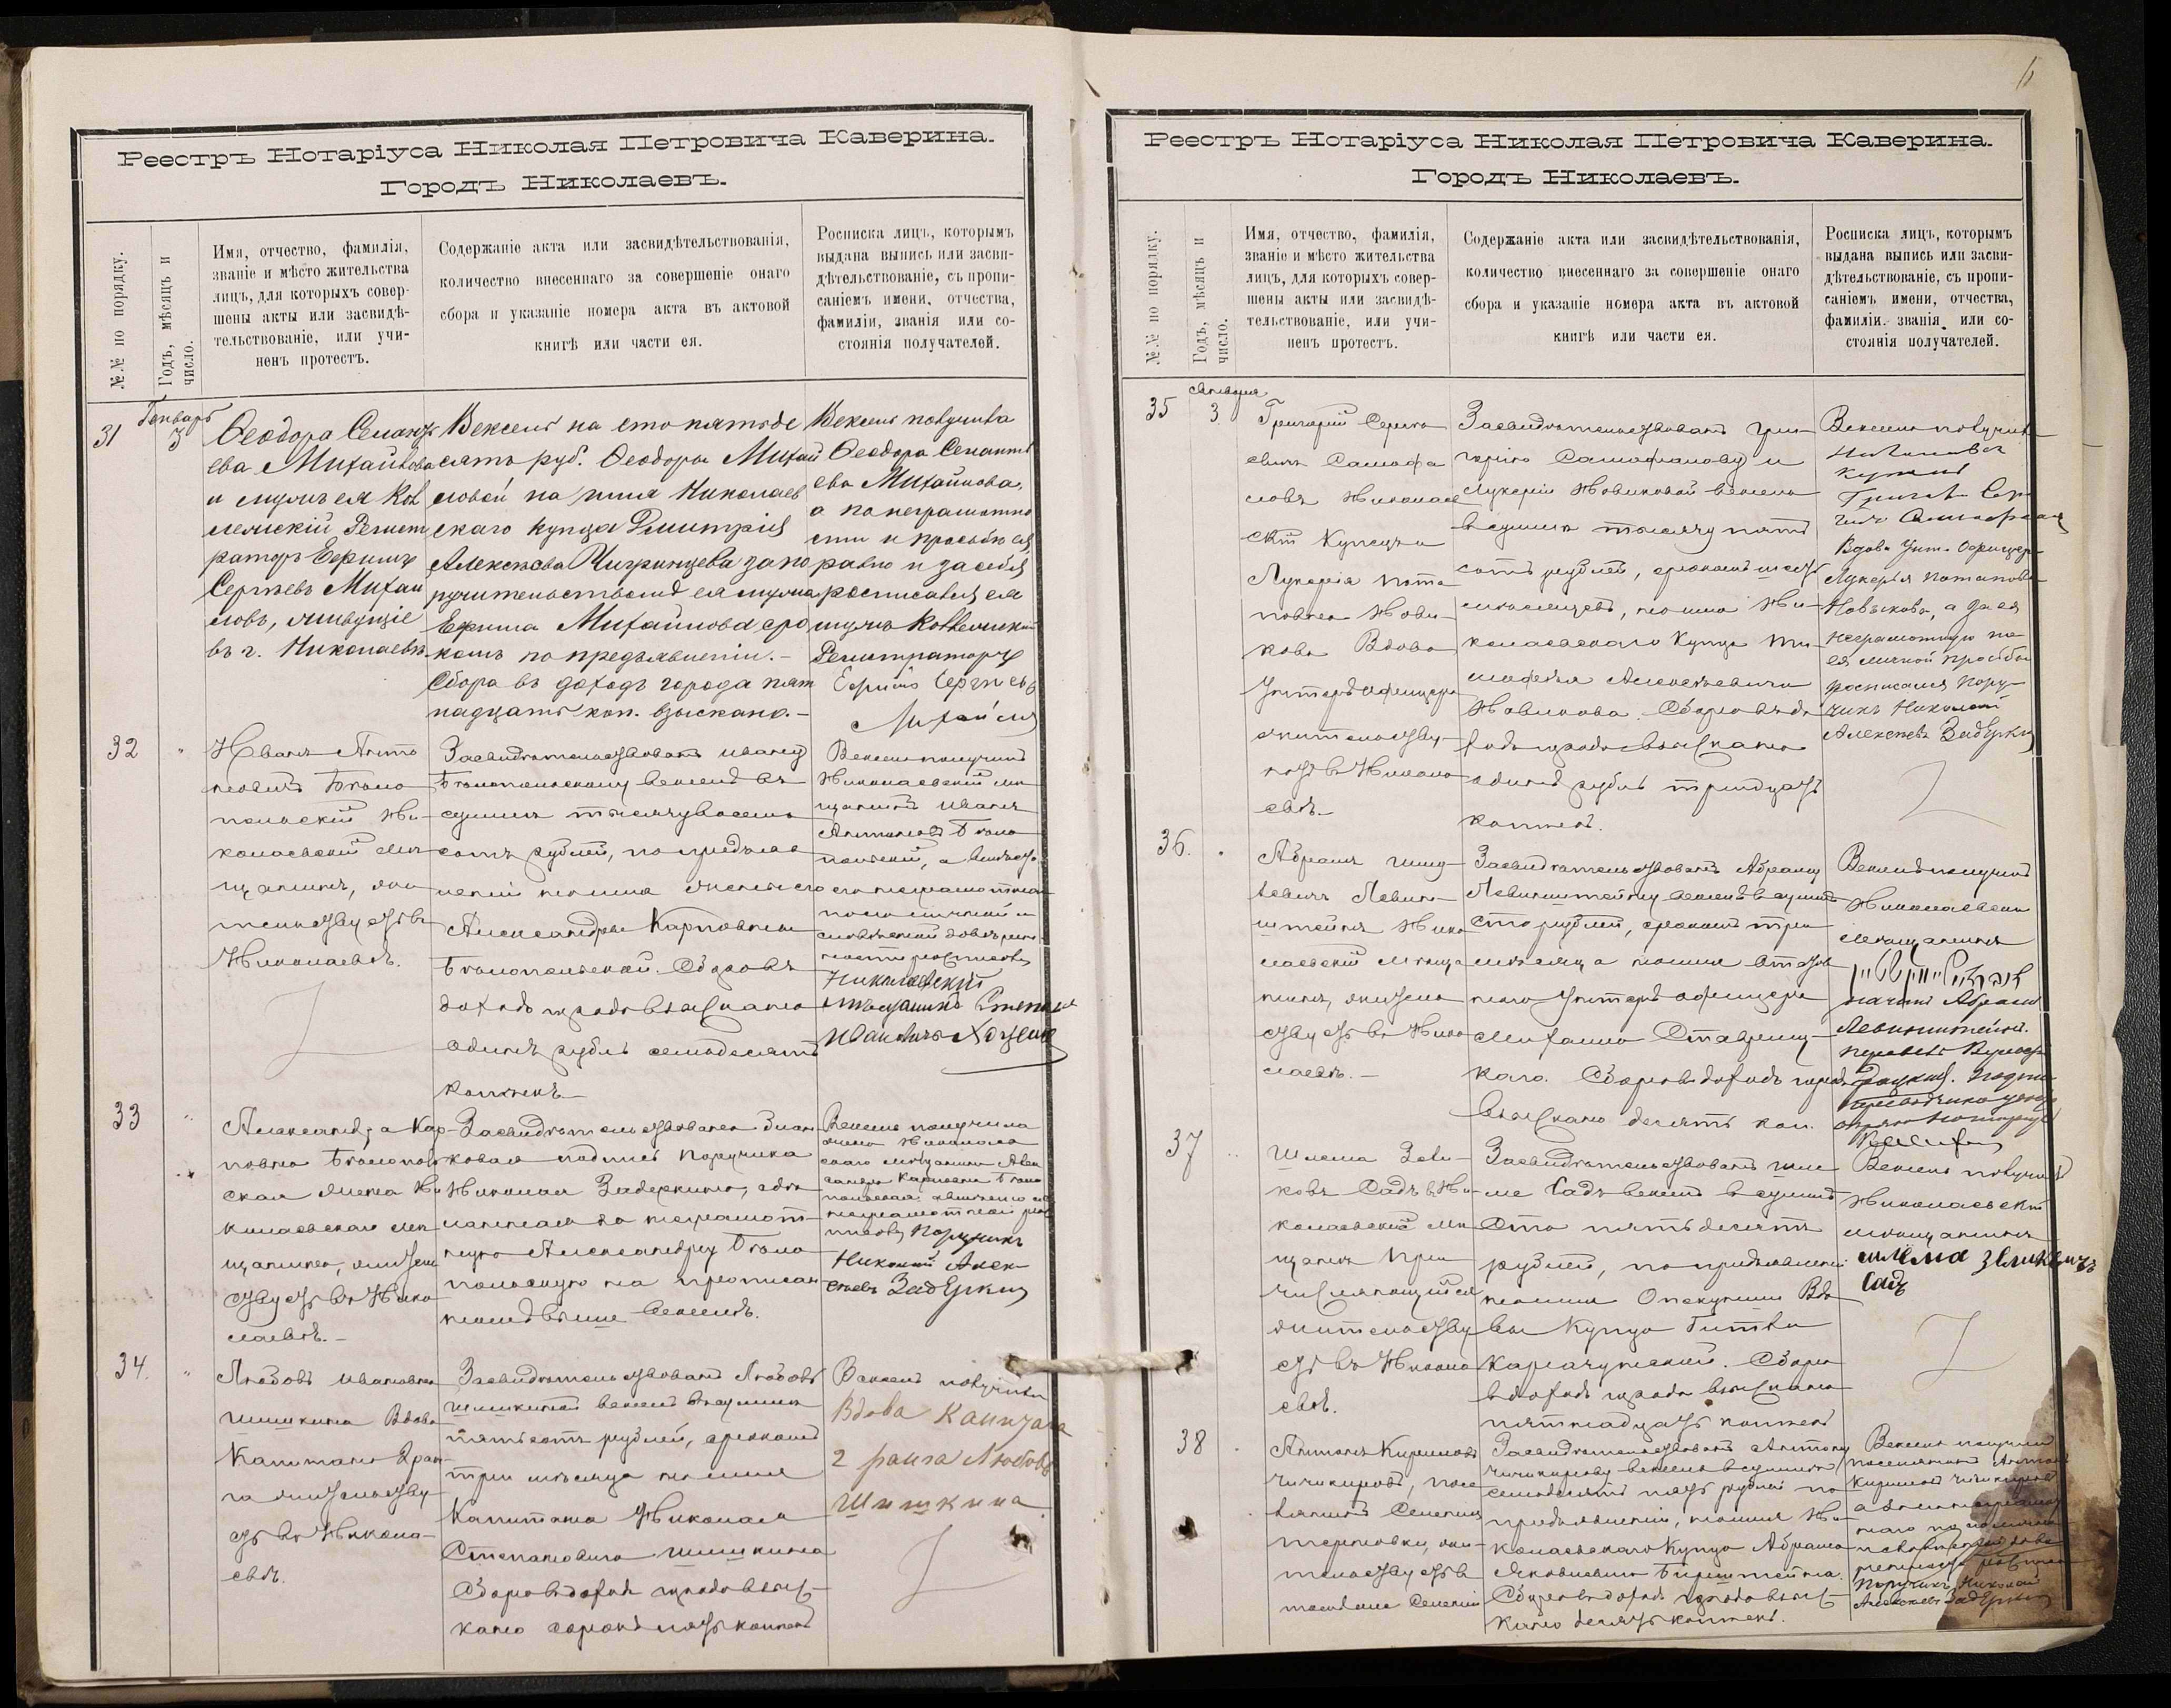 Реестръ Нотаріуса Николая Петровича Каверина.
Городъ Николаевъ.
№№ по порядку.
Годъ, мѣсяцъ и
число.
Имя, отчество, фамилія,
званіе и мѣсто жительства
лицъ, для которыхъ совер-
шены акты или засвидѣ-
тельствованіе, или учи-
ненъ протестъ.
Содержаніе акта или засвидѣтельствованія,
количество внесеннаго за совершеніе онаго
сбора и указаніе номера акта въ актовой
книгѣ или части ея.
Росписка лицъ, которымъ
выдана выпись или засви-
дѣтельствованіе, съ пропи-
саніемъ имени, отчества,
фамиліи, званія или со-
стоянія получателей.
31
Генварь
3
Ѳеодора
ева Михайлова
и мужъ ея Кол
лежскій Регист
раторъ Ефимъ
Сергѣевъ Михаи
ловъ, живущіе
въ г. Николаевѣ
Вексель на сто пятьде
сятъ руб. Ѳеодоры Михай
ловой на имя Николаев
скаго купца Дмитрія
Алексѣева Чигринцева за по
ручительствомъ ея мужа
Ефима Михайлова, сро
комъ по предъявленіи.-
Сбора въ доходъ города пят
надцать коп. взыскано.-
Вексель получила
Ѳеодора
ева Михайлова,
а по неграмотно
сти и просьбѣ ея,
равно и за себя
росписался ея
мужъ Коллежскій
Регистраторъ
Ефимъ Сергѣевъ
32
Иванъ Анто
новичъ Бѣло
польскій Ни-
колаевскій мѣ
щанинъ, жи
тельствуетъ въ
Николаевѣ.
Засвидѣтельствованъ Ивану
Бѣлопольскому вексель въ
суммѣ тысячу восемь
сотъ рублей, по предъяв
леніи на имя жены его
Александры Карповны
Бѣлопольской. Сборовъ въ
доходъ города взыскано
одинъ рубль семьдесятъ
копѣекъ
Вексель получилъ
Николаевскій мѣ
щанинъ Иванъ
Антоновъ Бѣло
польскій, а
его неграмотна
по его личной и
Николаевскій
мѣщанинъ Степанъ
Ивановичъ
33
Александра Кар
повна Бѣлополь
ская жена Ни
колаевскаго мѣ
щанина, житель
ствуетъ въ Нико
лаевѣ.-
Засвидѣтельствована
ковая подпись Поручика
Николая Задеркина, сдѣ
ланная за неграмот-
ную Александру Бѣло
польскую на прописан
номъ выше векселѣ.
Вексель получила
жена Николаев
скаго мѣщанина Алек
сандра Карповна Бѣло
польская,
Поручикъ
Николай Алек-
сѣевъ Задеркин
34.
Любовь Ивановна
Шишкина Вдова
Капитана 2 ран-
га жительству-
етъ въ Никола-
евѣ.
Засвидѣтельствованъ Любови
Шишкиной вексель въ суммѣ
пятьсотъ рублей, срокомъ
три мѣсяца на имя
Капитана Николая
Степановича Шишкина
Сборовъ въ доходъ города взыс-
кано сорокъ пять копѣекъ
Вексель получила
Вдова Капитана
2 ранга Любовь
Шишкина
6
Реестръ Нотаріуса Николая Петровича Каверина.
Городъ Николаевъ.
№№ по порядку.
Годъ, мѣсяцъ и
число.
Имя, отчество, фамилія,
званіе и мѣсто жительства
лицъ, для которыхъ совер-
шены акты или засвидѣ-
тельствованіе, или учи-
ненъ протестъ.
Содержаніе акта или засвидѣтельствованія,
количество внесеннаго за совершеніе онаго
сбора и указаніе номера акта въ актовой
книгѣ или части ея.
Росписка лицъ, которымъ
выдана выпись или засви-
дѣтельствованіе, съ пропи-
саніемъ имени, отчества,
фамиліи, званія или со-
стоянія получателей.
35
3.
Григорій Серге
евичъ
Николаев
скій Купецъ и
Лукерія Пота
повна Нови-
кова Вдова
Унтеръ офицера
жительству-
ютъ въ Никола
евѣ.-
Засвидѣтельствованъ Гри-
горію и
Лукеріи Новиковой вексель
въ суммѣ тысячу пять
сотъ рублей, срокомъ шесть
мѣсяцевъ, на имя Ни-
колаевскаго Купца Ти
мофея Алексѣевича
Новикова. Сборовъ въ до
ходъ города взыскано
одинъ рубль тридцать
копѣекъ.
Вексель получилъ
Вдова Унт. Офицера
Лукерья Потапова
Новикова, а за ея
неграмотную по
ея личной просьбѣ
росписался Пору-
чикъ Николай
Алексѣевъ Задеркин
36.
Абрамъ Шму-
левичъ Левин-
штейнъ Нико
лаевскій мѣща
нинъ, житель
ствуетъ въ Нико
лаевѣ.-
Засвидѣтельствованъ Абраму
Левинштейну вексель въ суммѣ
Сто рублей, срокомъ три
мѣсяца на имя Отстав
наго Унтеръ офицера
каго. Сборовъ въ доходъ города
взыскано десять коп.
Вексель получилъ
Николаевскій
мѣщанинъ
значитъ Абрамъ
Левинштейнъ.
37
Шлема Зели-
ковъ Садъ Ни-
колаевскій мѣ
щанинъ при
числяющійся
жительству
етъ въ Никола
евѣ.
Засвидѣтельствованъ Шле
ме Садъ вексель въ суммѣ
Сто пятьдесятъ
рублей, по предъявленіи
на имя Опекунши Вдо
вы Купца
Сборъ
въ доходъ города взыскано
пятнадцать копѣекъ
Вексель получилъ
Николаевскій
мѣщанинъ
шлема
Садъ
38
Антонъ Кириловъ
Чичикировъ, посе
лянинъ Селенія
Терновки, жи-
тельствуетъ въ
томъ же Селеніи
Засвидѣтельствованъ Антону
Чичикирову вексель въ суммѣ
семьдесятъ пять рублей по
предъявленіи, на имя Ни-
колаевскаго Купца Абрама
Яковлевича Бернштейна.
Сборовъ въ доходъ города взыс-
кано десять копѣекъ.
Вексель получилъ
поселянинъ Антонъ
Кириловъ Чичикировъ
Поручикъ Николай
Алексѣевъ Задеркин